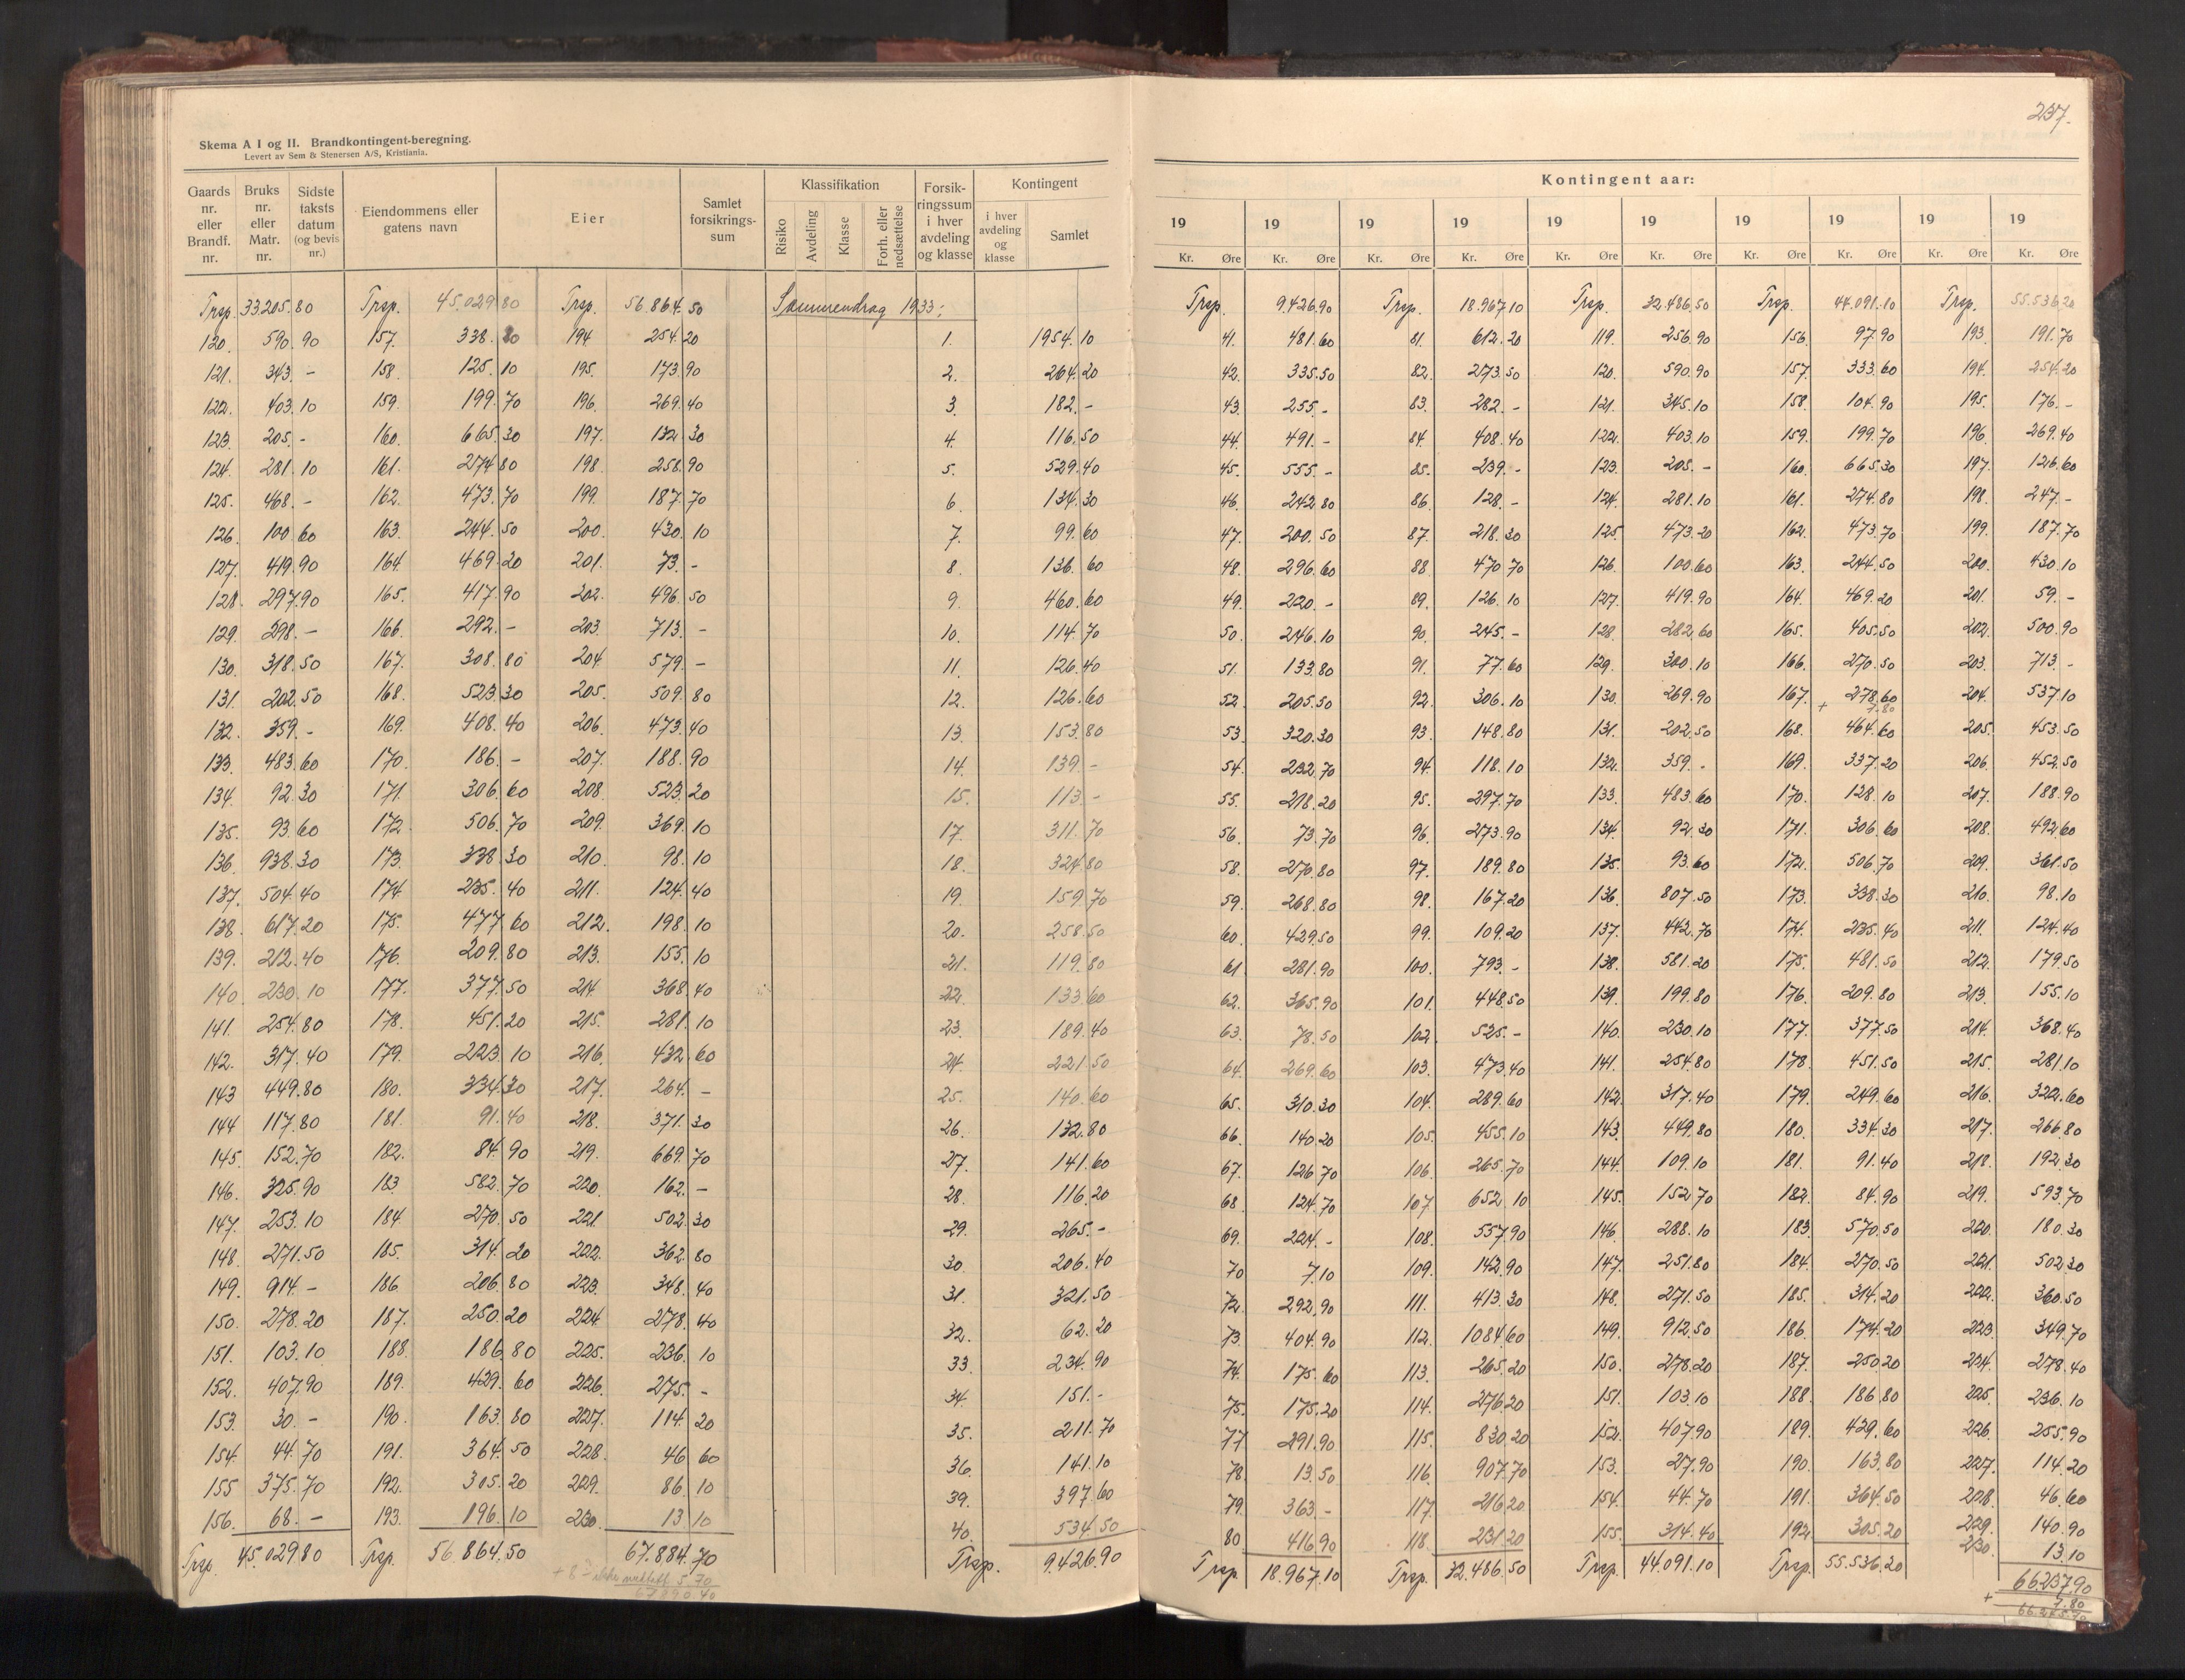 237.
Skema A I og II. Brandkontingent-beregning.
Levert av Sem & Stenersen A/S, Kristiania.
Gaards nr. eller Brandf. nr. | Bruks nr. eller Matr. nr. | Sidste taksts datum (og bevis nr.) | Eiendommens eller gatens navn | Eier | Samlet forsikrings-sum | Klassifikation | Risiko | Avdeling | Klasse | Forh. eller nedsættelse | Forsik-ringssum i hver avdeling og klasse | Kontingent | i hver avdeling og klasse | Samlet
Trsp. 33.205.80 Trsp. 45.029.80 Trsp. 56.864.50 Sammendrag 1933:
120. 590.90 157. 338.80 194 254.20 1. 1954.10
121. 343.- 158. 125.10 195. 173.90 2. 264.20
122. 403.10 159. 199.70 196. 269.40 3. 182.-
123. 205.- 160. 665.30 197. 132.30 4. 116.50
124. 281.10 161. 274.80 198. 258.90 5. 529.40
125. 468.- 162. 473.70 199. 187.70 6. 134.30
126. 100.60 163. 244.50 200. 430.10 7. 99.60
127. 419.90 164 469.20 201. 73.- 8. 136.60
128. 297.90 165. 417.90 202. 496.50 9. 460.60
129. 298.- 166. 292.- 203. 713.- 10. 114.70
130. 318.50 167. 308.80 204 579.- 11. 126.40
131. 202.50 168. 523.30 205. 509.80 12. 126.60
132. 359.- 169. 408.40 206. 473.40 13. 153.80
133. 483.60 170. 186.- 207. 188.90 14. 139.-
134. 92.30 171. 306.60 208. 523.20 15. 113.-
135. 93.60 172. 506.70 209. 369.10 17. 311.70
136. 938.30 173. 338.30 210. 98.10 18. 324.80
137. 504.40 174. 235.40 211. 124.40 19. 159.70
138. 617.20 175. 477.60 212. 198.10 20. 258.50
139. 212.40 176. 209.80 213. 155.10 21. 119.80
140. 230.10 177. 377.50 214. 368.40 22. 133.60
141. 254.80 178. 451.20 215. 281.10 23. 189.40
142. 317.40 179. 223.10 216. 432.60 24. 221.50
143 449.80 180. 334.30 217. 264.- 25. 140.60
144 117.80 181. 91.40 218. 371.30 26. 132.80
145. 152.70 182. 84.90 219. 669.70 27. 141.60
146. 325.90 183 582.70 220. 162.- 28. 116.20
147. 253.10 184. 270.50 221 502.30 29. 265.-
148. 271.50 185. 314.20 222. 362.80 30. 206.40
149. 914.- 186 206.80 223. 348.40 31. 321.50
150. 278.20 187. 250.20 224. 278.40 32. 62.20
151. 103.10 188. 186.80 225. 236.10 33. 234.90
152. 407.90 189. 429.60 226. 275.- 34. 151.-
153. 30.- 190. 163.80 227. 114.20 35. 211.70
154. 44.70 191. 364.50 228. 46.60 36. 141.10
155 375.70 192. 305.20 229. 86.10 39. 397.60
156. 68.- 193. 196.10 230. 13.10 40. 534.50
Trsp. 45.029.80 Trsp. 56.864.50 67.884.70 Trsp. 9.426.90
5.70
67.890.40
Kontingent aar:
19 19 19 19 19 19 19 19 19 19
Kr. Øre Kr. Øre Kr. Øre Kr. Øre Kr. Øre Kr. Øre Kr. Øre Kr. Øre Kr. Øre Kr. Øre
Trsp. 9.426.90 Trsp. 18.967.10 Trsp. 32.486.50 Trsp. 44.091.10 Trsp. 55.536.20
41. 481.60 81. 612.20 119. 256.90 156. 97.90 193. 191.70
42. 335.50 82. 273.50 120. 590.90 157. 333.60 194. 254.20
43. 255.- 83. 282.- 121. 345.10 158. 104.90 195. 176.-
44. 491.- 84. 408.40 122. 403.10 159. 199.70 196. 269.40
45. 555.- 85. 239.- 123. 205.- 160. 665.30 197. 126.60
46. 242.80 86. 128.- 124. 281.10 161. 274.80 198. 247.-
47. 200.50 87. 218.30 125. 473.20 162. 473.70 199. 187.70
48. 296.60 88. 470.70 126. 100.60 163. 244.50 200. 430.10
49. 220.- 89. 126.10 127. 419.90 164. 469.20 201. 59.-
50. 246.10 90. 245.- 128. 282.60 165. 405.50 202. 500.90
51. 133.80 91. 77.60 129. 300.10 166. 270.50 203. 713.-
52. 205.30 92. 306.10 130. 269.90 167. 278.60 204. 537.10
+ 7.80
53. 320.30 93. 148.80 131. 202.50 168. 464.60 205. 453.50
54. 232.70 94. 118.10 132. 359.- 169. 337.20 206. 452.50
55. 218.20 95. 297.70 133. 483.60 170. 128.10 207. 188.90
56. 73.70 96. 273.90 134. 92.30 171. 306.60 208. 492.60
58. 270.80 97. 189.80 135. 93.60 172. 506.70 209. 361.50
59. 268.80 98. 167.20 136. 807.50 173. 338.30 210. 98.10
60. 429.50 99. 109.20 137. 442.70 174. 235.40 211. 124.40
61 281.90 100. 793.- 138. 581.20 175. 481.50 212. 179.50
62. 365.90 101. 448.50 139. 199.80 176. 209.80 213. 155.10
63. 78.50 102. 525.- 140. 230.10 177. 377.50 214. 368.40
64. 269.60 103. 473.40 141. 254.80 178. 451.50 215. 281.10
65. 310.30 104. 289.60 142. 317.40 179. 249.60 216. 322.60
66. 140.20 105. 455.10 143. 449.80 180. 334.30 217. 266.80
67. 126.70 106. 265.70 144. 109.10 181. 91.40 218. 192.30
68. 124.70 107. 652.10 145. 152.70 182. 84.90 219. 593.70
69. 224.- 108. 557.90 146. 288.10 183. 570.50 220. 180.30
70 7.10 109. 142.90 147. 251.80 184. 270.50 221. 502.30
72. 292.90 111. 413.30 148. 271.50 185. 314.20 222. 360.50
73. 404.90 112. 1084.60 149. 912.50 186. 174.20 223. 349.70
74. 175.60 113. 265.20 150. 278.20 187. 250.20 224. 278.40
75. 175.20 114. 276.20 151. 103.10 188. 186.80 225. 236.10
77 291.90 115. 830.20 152. 407.90 189. 429.60 226. 255.90
78. 13.50 116. 907.70 153. 27.90 190. 163.80 227. 114.20
79. 363.- 117. 216.20 154. 44.70 191. 364.50 228. 46.60
80 416.90 118. 231.20 155. 314.40 192. 305.20 229. 140.90
230. 13.10
Trsp. 18.967.10 Trsp. 32.486.50 Trsp. 44.091.10 Trsp. 55.536.20
66.237.90
+ 7.80
66.245.70